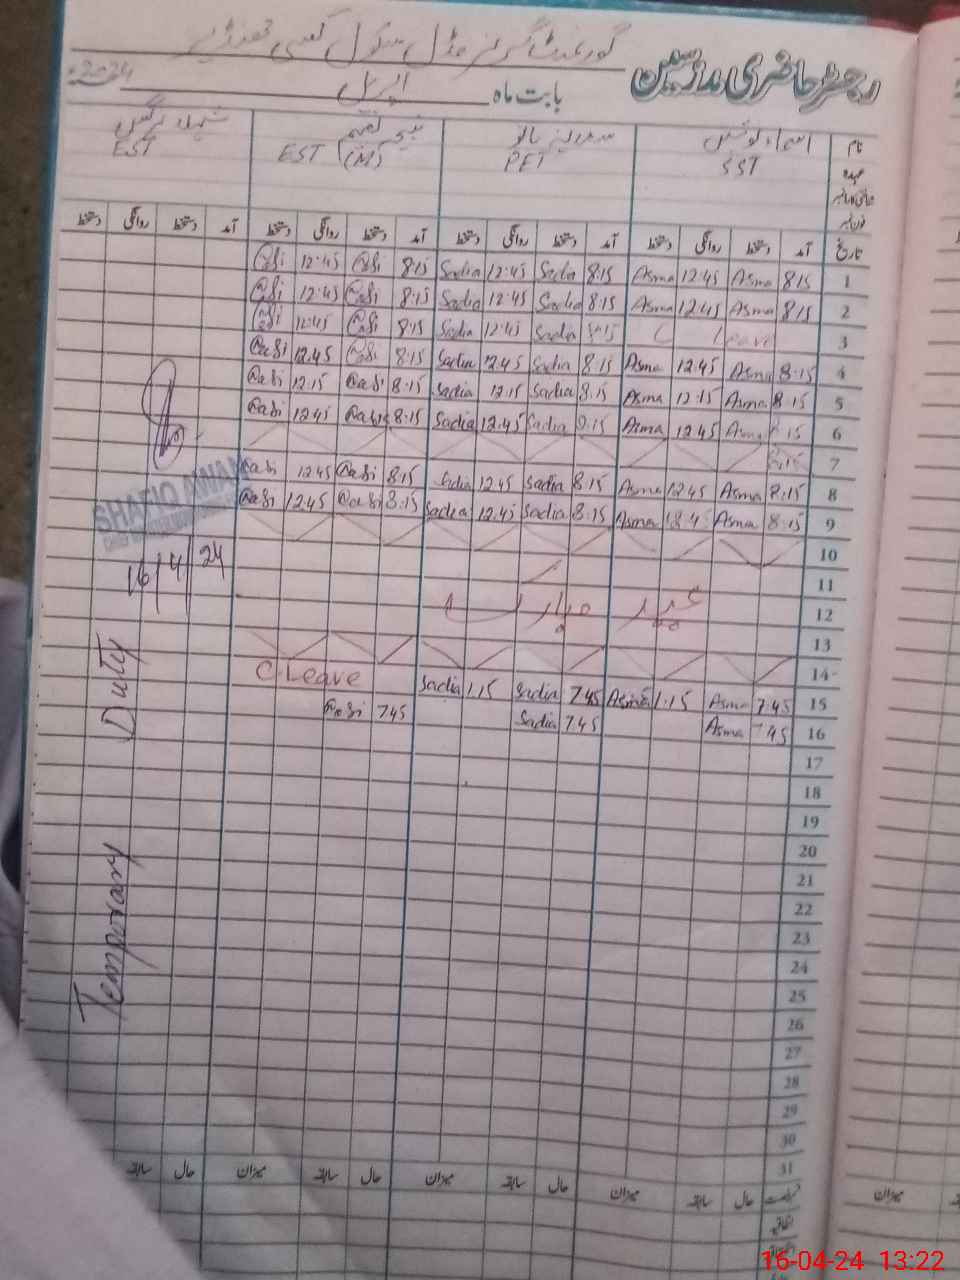 رجسٹر حاضری مدرسین گورنمنٹ گرلز مڈل سکول
بابت ماہ اپریل 2024
نام اسماء
عہدہ SST PET EST (M) EST
تاریخ آمد دستخط روانگی دستخط آمد دستخط روانگی دستخط آمد دستخط روانگی دستخط آمد دستخط روانگی دستخط
1 8:15 Asma 12:45 Asma 8:15 Sadia 12:45 Sadia 8:15 12:45
2 8:15 Asma 12:45 Asma 8:15 Sadia 12:45 Sadia 8:15 12:45
3 Leave 8:15 Sadia 12:45 Sadia 8:15 12:45
4 8:15 Asma 12:45 Asma 8:15 Sadia 12:45 Sadia 8:15 12:45
5 8:15 Asma 12:15 Asma 8:15 Sadia 12:15 Sadia 8:15 12:15
6 8:15 Asma 12:45 Asma 8:15 Sadia 12:45 Sadia 8:15 12:45
7
8 8:15 Asma 12:45 Asma 8:15 Sadia 12:45 Sadia 8:15 12:45
9 8:15 Asma 12:45 Asma 8:15 Sadia 12:45 Sadia 8:15 12:45
SHAFIQ AWAN
16/4/24
10
11
12 عید مبارک
13
14
15 7:45 Asma 1:15 Asma 7:45 Sadia 1:15 Sadia C.Leave
16 7:45 Asma 7:45 Sadia 7:45
Temporary Duty
17
18
19
20
21
22
23
24
25
26
27
28
29
30
31
حال سابقہ میزان حال سابقہ میزان حال سابقہ میزان حال سابقہ
میزان
16-04-24 13:22